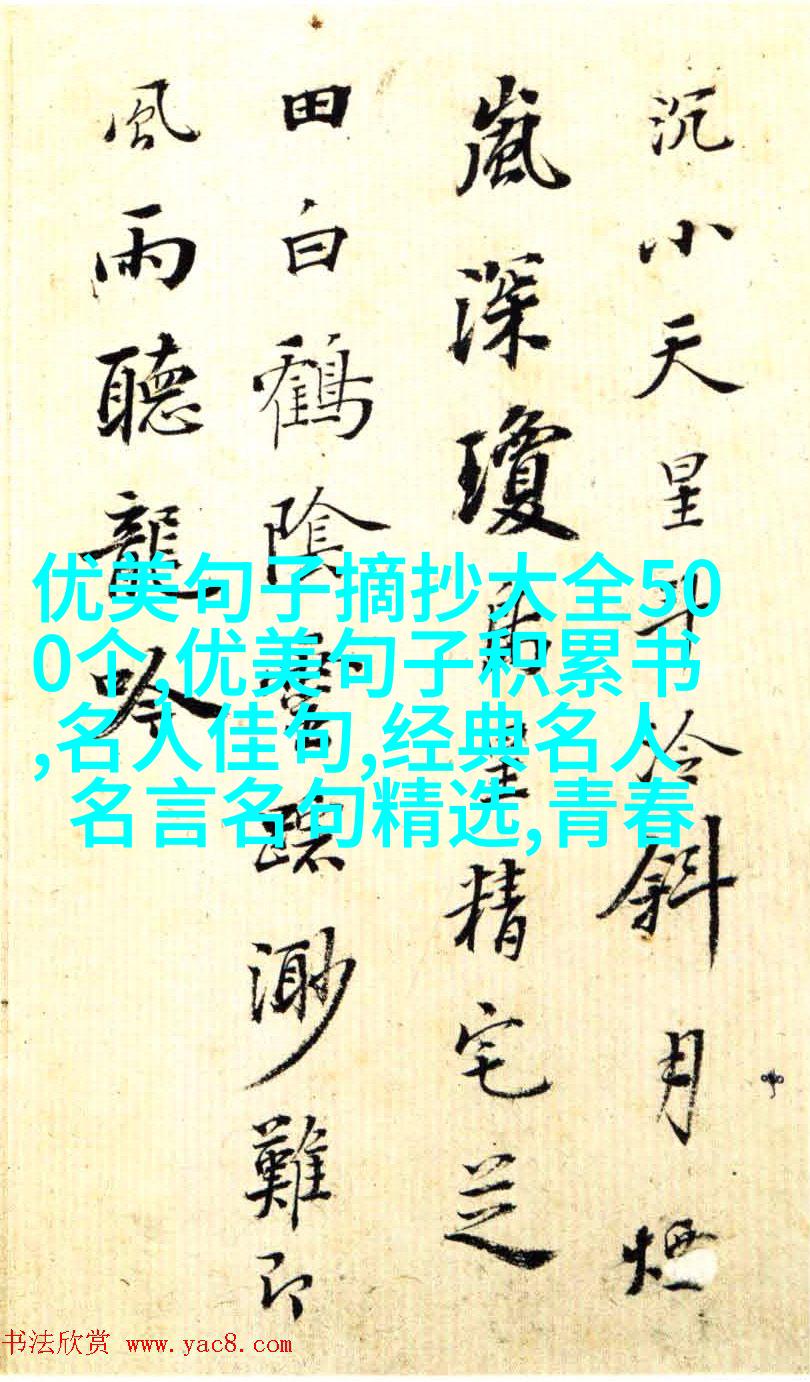 沉小天星斗冷斜月煙
嵐深瓊居皇精宅芝
田白鶴陰雲蹤渺難即
風雨聽龍吟
优美句子摘抄大全50
0个,优美句子积累书
,名人佳句,经典名人
名言名句精选,青春
书法欣赏 www.yac8.com